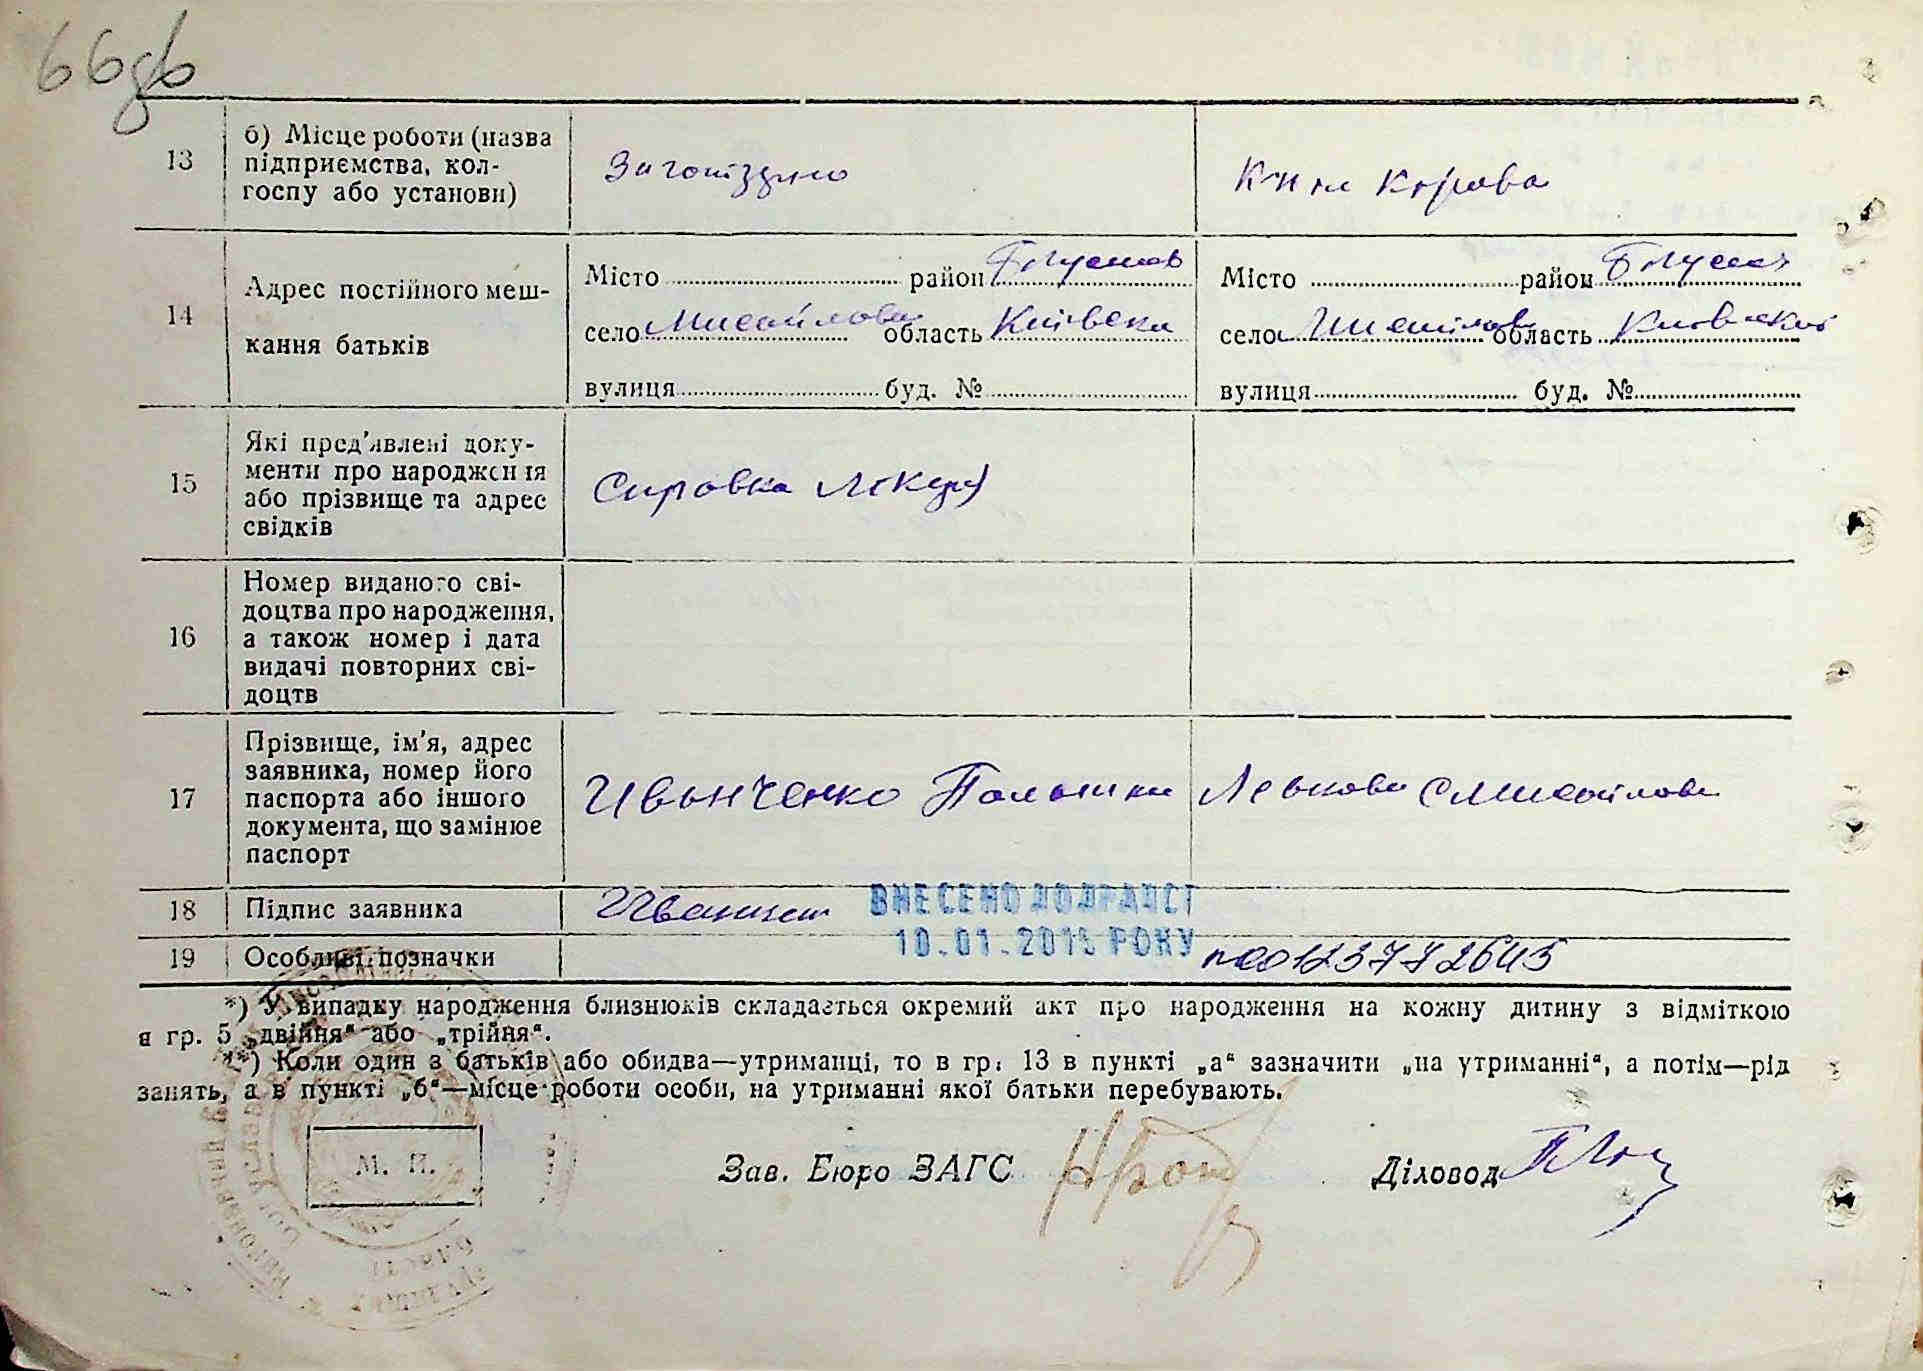 66 зв
13 б) Місце роботи (назва
підприємства, кол-
госпу або установи)
14 Адрес постійного меш-
кання батьків
Місто район Богуслав
село Мисайлівка область Київська
вулиця буд. №
Місто район Богуслав
село Мисайлівка область Київська
вулиця буд. №
15 Які пред'явлені доку-
менти про народження
або прізвище та адрес
свідків
Справка лікаря
16 Номер виданого сві-
доцтва про народження,
а також номер і дата
видачі повторних сві-
доцтв
17 Прізвище, ім'я, адрес
заявника, номер його
паспорта або іншого
документа, що замінює
паспорт
Иванченко
18 Підпис заявника
ВНЕСЕНО ДО ДРАЦСГ
19 Особливі позначки
10.01.2011 РОКУ
*) У випадку народження близнюків складається окремий акт про народження на кожну дитину з відміткою
в гр. 5 „двійня“ або „трійня“.
**) Коли один з батьків або обидва—утриманці, то в гр. 13 в пункті „а“ зазначити „на утриманні“, а потім—рід
занять, а в пункті „б“—місце роботи особи, на утриманні якої батьки перебувають.
М. П.
Зав. Бюро ЗАГС
Діловод